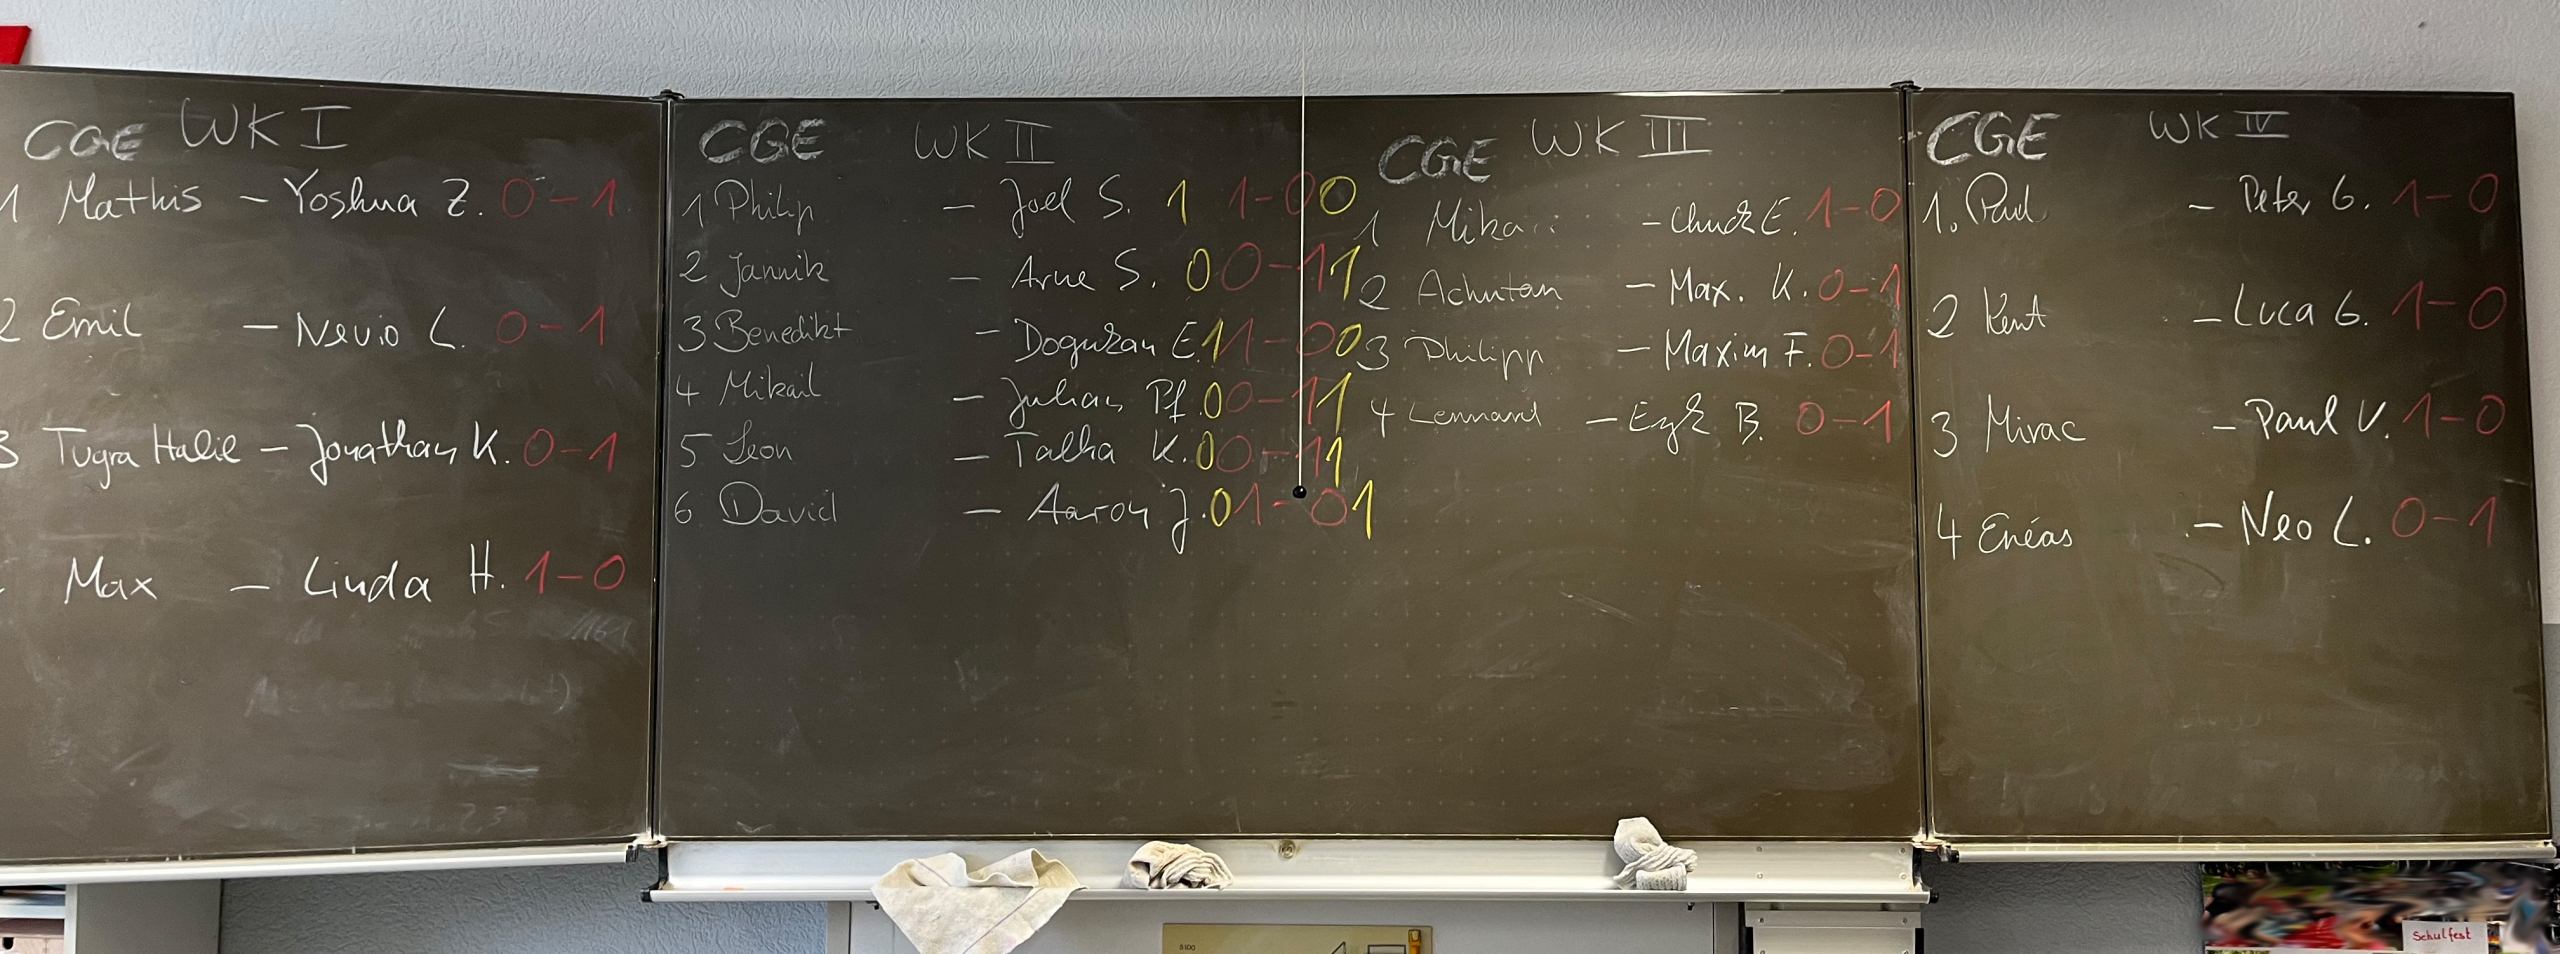 CGE WK I
1 Mathis - Yoshua Z. 0-1
2 Emil - Nevio L. 0-1
3 Tugra Halil - Jonathan K. 0-1
Max - Linda H. 1-0
CGE WK II
1 Philip - Joel S. 1 1-0 0
2 Jannik - Arne S. 0 0-1 1
3 Benedikt - Doguzan E. 1 1-0 0
4 Mikail - Julian Pf. 0 0-1 1
5 Leon - Talha K. 0 0-1 1
6 David - Aaron J. 0 1-0 1
CGE WK III
1 Mika - E. 1-0
2 Achutan - Max. K. 0-1
3 Philipp - Maxim F. 0-1
4 Lennard - B. 0-1
CGE WK IV
1. Paul - Peter G. 1-0
2 Kent - Luca G. 1-0
3 Mirac - Paul V. 1-0
4 Enéas - Neo L. 0-1
Schulfest